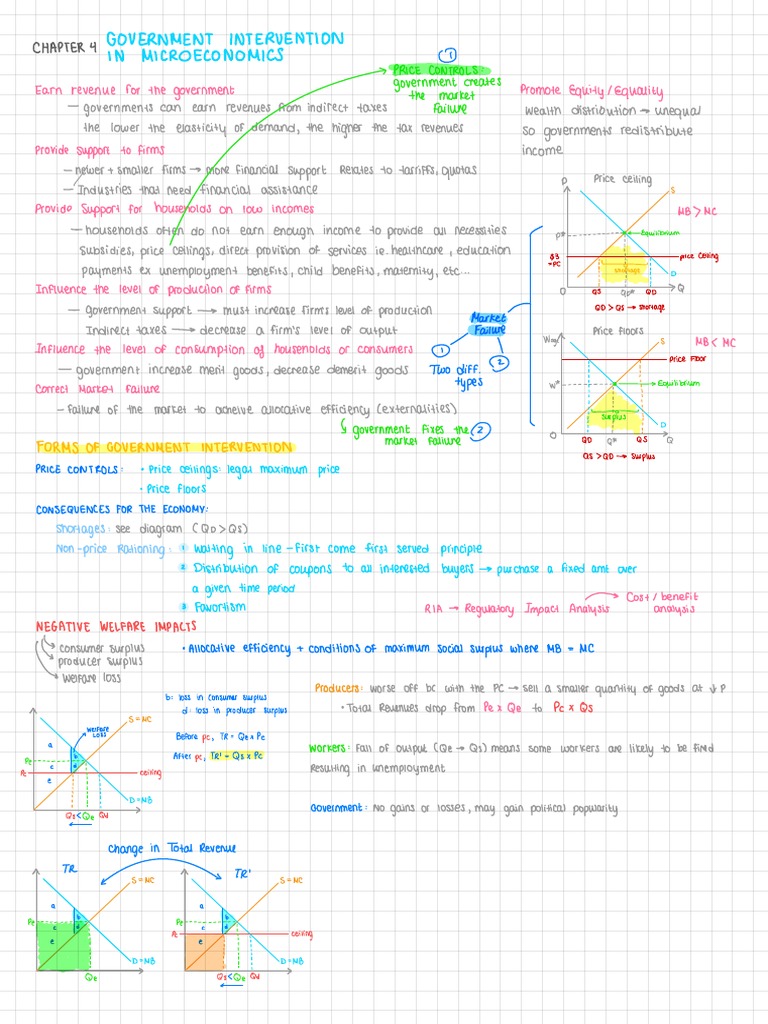 CHAPTER 4
GOVERNMENT INTERVENTION
IN MICROECONOMICS
①
PRICE CONTROLS:
government creates
the market
failure
Earn revenue for the government
— governments can earn revenues from indirect taxes
the lower the elasticity of demand, the higher the tax revenues
Provide support to firms
— newer + smaller firms → more financial support Relates to tarriffs, quotas
— Industries that need financial assistance
Provide Support for households on low incomes
— households often do not earn enough income to provide all necessities
Subsidies, price ceilings, direct provision of services ie. healthcare, education
payments ex unemployment benefits, child benefits, maternity, etc...
Influence the level of production of firms
— government support → must increase firm's level of production
Indirect taxes → decrease a firm's level of output
Influence the level of consumption of households or consumers
— government increase merit goods, decrease demerit goods
Correct Market Failure
- failure of the market to acheive allocative efficiency (externalities)
↳ government fixes the
market failure ②
Promote Equity / Equality
Wealth distribution → unequal
so governments redistribute
income
Market
Failure
① ②
Two diff.
types
Price ceiling
P
S
MB > MC
P*
Equilibrium
price ceiling
shortage
D
O
QS Q* QD Q
QD > QS → shortage
Price floors
Wage
S
MB < MC
Price Floor
W*
Equilibrium
surplus
D
O
QD Q* QS Q
QS > QD → Surplus
FORMS OF GOVERNMENT INTERVENTION
PRICE CONTROLS: • Price ceilings: legal maximum price
• Price floors
CONSEQUENCES FOR THE ECONOMY:
Shortages: see diagram (QD > QS)
Non-price Rationing: ① Waiting in line - first come first served principle
② Distribution of coupons to all interested buyers → purchase a fixed amt over
a given time period
③ Favortism
RIA → Regulatory Impact Analysis
Cost / benefit
analysis
NEGATIVE WELFARE IMPACTS
consumer surplus
producer surplus
welfare loss
• Allocative efficiency + conditions of maximum social surplus where MB = MC
b: loss in consumer surplus
d: loss in producer surplus
Before pc, TR = Qe x Pe
After pc, TR' = Qs x Pc
S = MC
welfare
loss
a
b
Pe
c
d
Pc
ceiling
e
D = MB
Qs < Qe Qd
Producers: worse off bc with the PC → sell a smaller quantity of goods at ↓ P
• Total Revenues drop from Pe x Qe to Pc x Qs
Workers: Fall of output (Qe → Qs) means some workers are likely to be fired
resulting in unemployment
Government: No gains or losses, may gain political popularity
Change in Total Revenue
TR
S = MC
a
b
Pe
c
d
e
D = MB
Qe
TR'
S = MC
a
b
Pe
c
d
Pc
ceiling
e
D = MB
Qs < Qe Qd